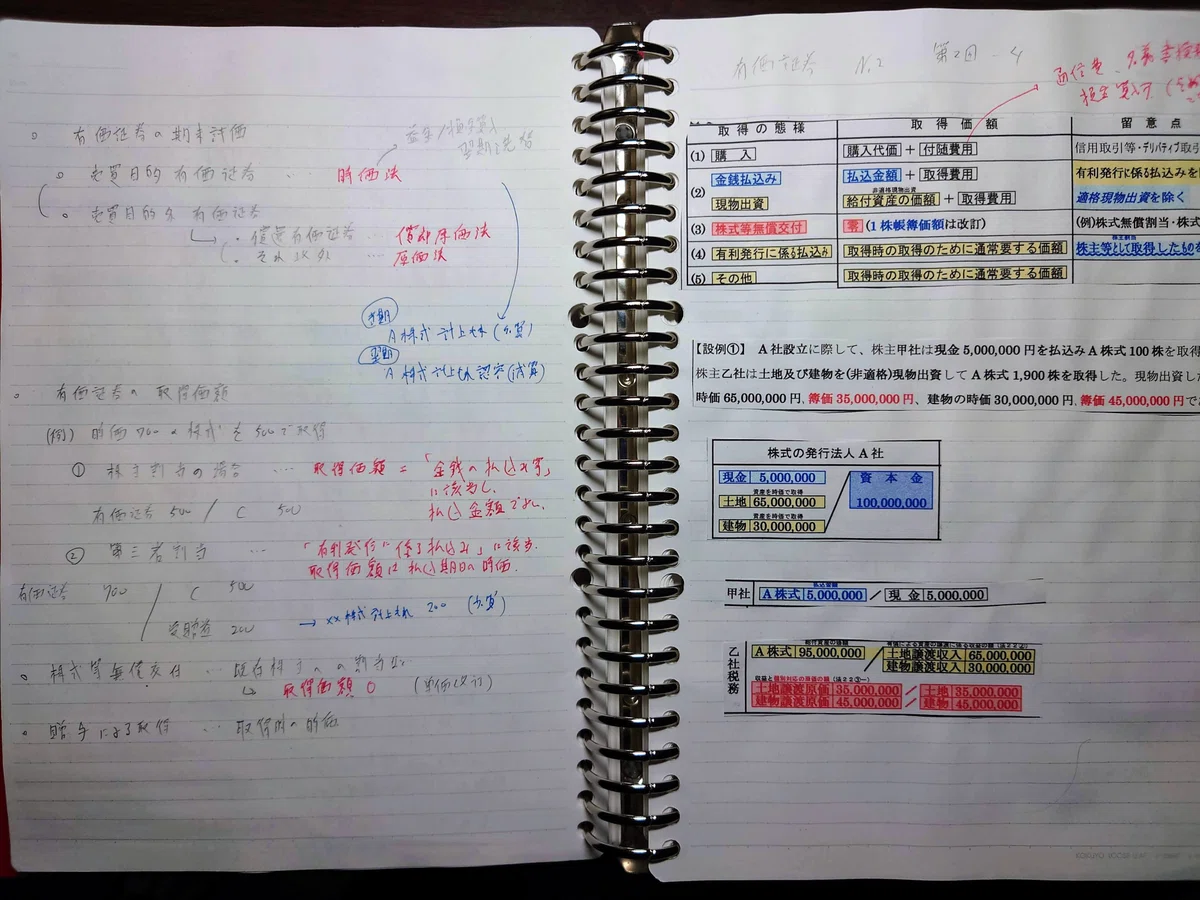 。有価証券の期末評価
益金/損金算入
翌期に洗替
。売買目的有価証券 … 時価法
。売買目的外有価証券
・償還有価証券 … 償却原価法
・それ以外 … 原価法
当期
A株式計上もれ(加算)
翌期
A株式計上もれ認容(減算)
。有価証券の取得価額
(例) 時価700の株式を500で取得
① 株主割当の場合 … 取得価額=「金銭の払込み等」
に該当し、
払込金額でよい、
有価証券 500 / C 500
② 第三者割当 … 「有利発行に係る払込み」に該当.
取得価額は払込期日の時価.
有価証券 700 / C 500
受贈益 200
→ ××株式計上もれ 200 (加算)
。株式等無償交付 … 既存株主への割当
→ 取得価額0 (単価改訂)
。贈与による取得 … 取得時の時価
有価証券 No.2 第2回-4
通信費、名義書換
損金算入可
取得の態様 取得価額 留意点
(1) 購入 購入代価+付随費用 信用取引等・デリバティブ取引
(2) 金銭払込み 払込金額+取得費用 有利発行に係る払込みを
非適格現物出資
現物出資 給付資産の価額+取得費用 適格現物出資を除く
(3) 株式等無償交付 零(1株帳簿価額は改訂) (例)株式無償割当・株式
(4) 有利発行に係る払込み 取得時の取得のために通常要する価額 株主等として取得したものを
(5) その他 取得時の取得のために通常要する価額
【設例①】 A社設立に際して、株主甲社は現金5,000,000円を払込みA株式100株を取得
株主乙社は土地及び建物を(非適格)現物出資してA株式1,900株を取得した。現物出資し
時価65,000,000円、簿価35,000,000円、建物の時価30,000,000円、簿価45,000,000円で
株式の発行法人A社
現金 5,000,000 資本金
資産を時価で取得
土地 65,000,000 100,000,000
資産を時価で取得
建物 30,000,000
払込金額
甲社 A株式 5,000,000 / 現金 5,000,000
乙社税務
A株式 95,000,000 / 土地譲渡収入 65,000,000
建物譲渡収入 30,000,000
収益と個別対応の原価の額(法22③一)
土地譲渡原価 35,000,000 / 土地 35,000,000
建物譲渡原価 45,000,000 / 建物 45,000,000